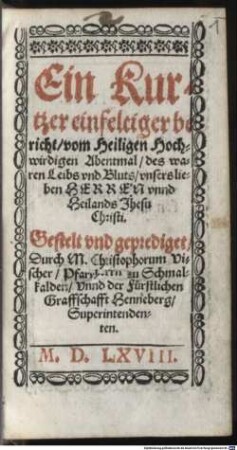 1
Ein Kur-
tzer einfeleiger be
richt/ vom Heiligen Hoch-
wirdigen Abentmal/ des wa-
ren Leibs vnd Bluts/ vnsers lie-
ben HERREN vnnd
Heilands Jhesu
Christi.
Gestelt vnd geprediget/
Durch M. Christophorum Vi-
scher/ zu Schmal-
kalden/ Vnnd der Fürstlichen
Graffschafft Henneberg/
Superintenden-
ten.
M. D. LXVIII.